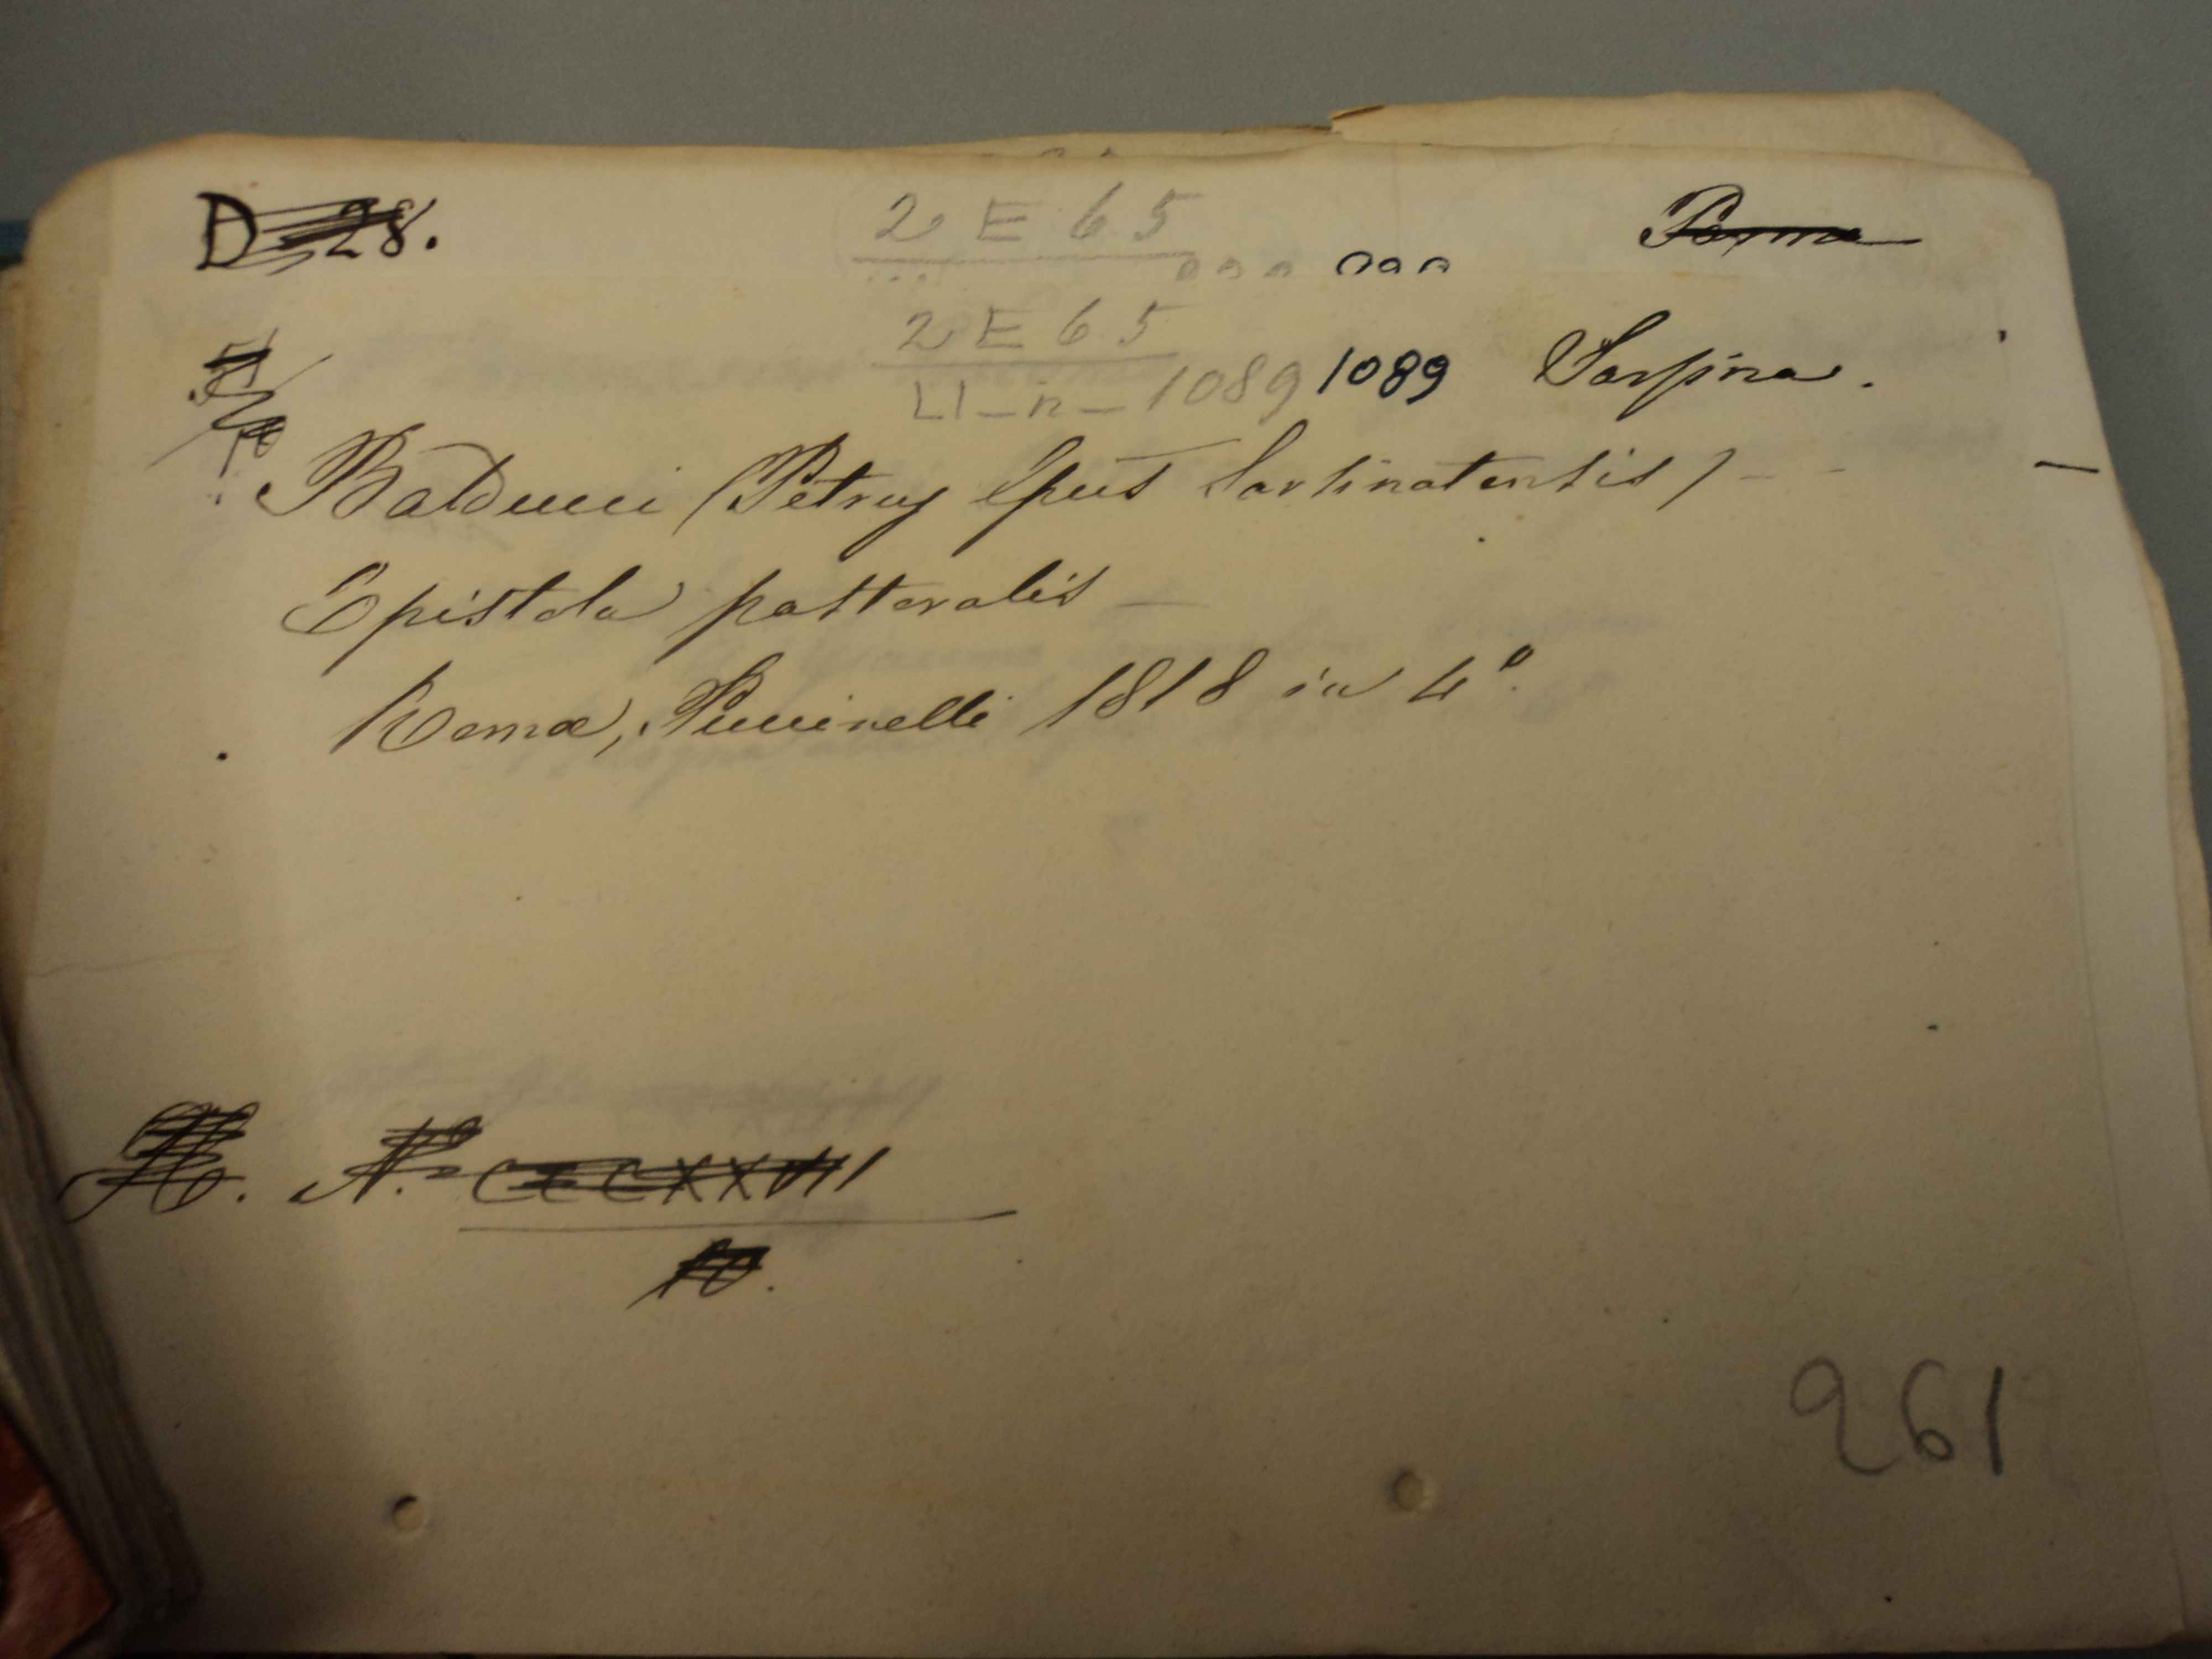 D 28.
2 E 65
Parma
2 E 65
LI - n - 1089 1089 Sarsina.
Balducci (Petrus Epus Sarsinatensis) -
Epistola pastoralis -
Romæ, Puccinelli 1818 in 4º.
N. CCCXXVIII
10.
261